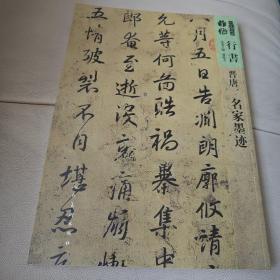 行書
晋唐一
名家墨迹
八月五日告淵朗廓攸靖
允等何圖酷禍暴集中
郎奄至逝没哀痛崩慟
五情破裂不自堪忍